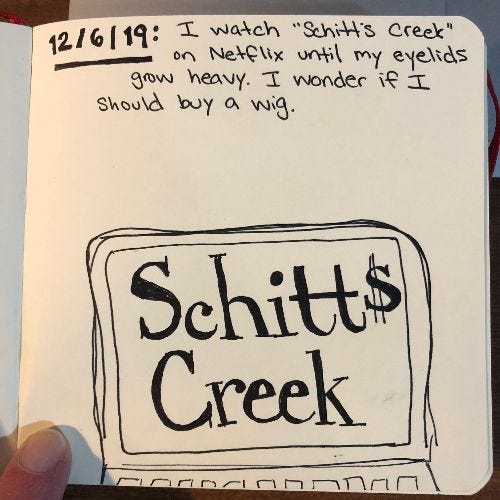 12/6/19: I watch "Schitt's Creek"
on Netflix until my eyelids
grow heavy. I wonder if I
should buy a wig.
Schitt$
Creek